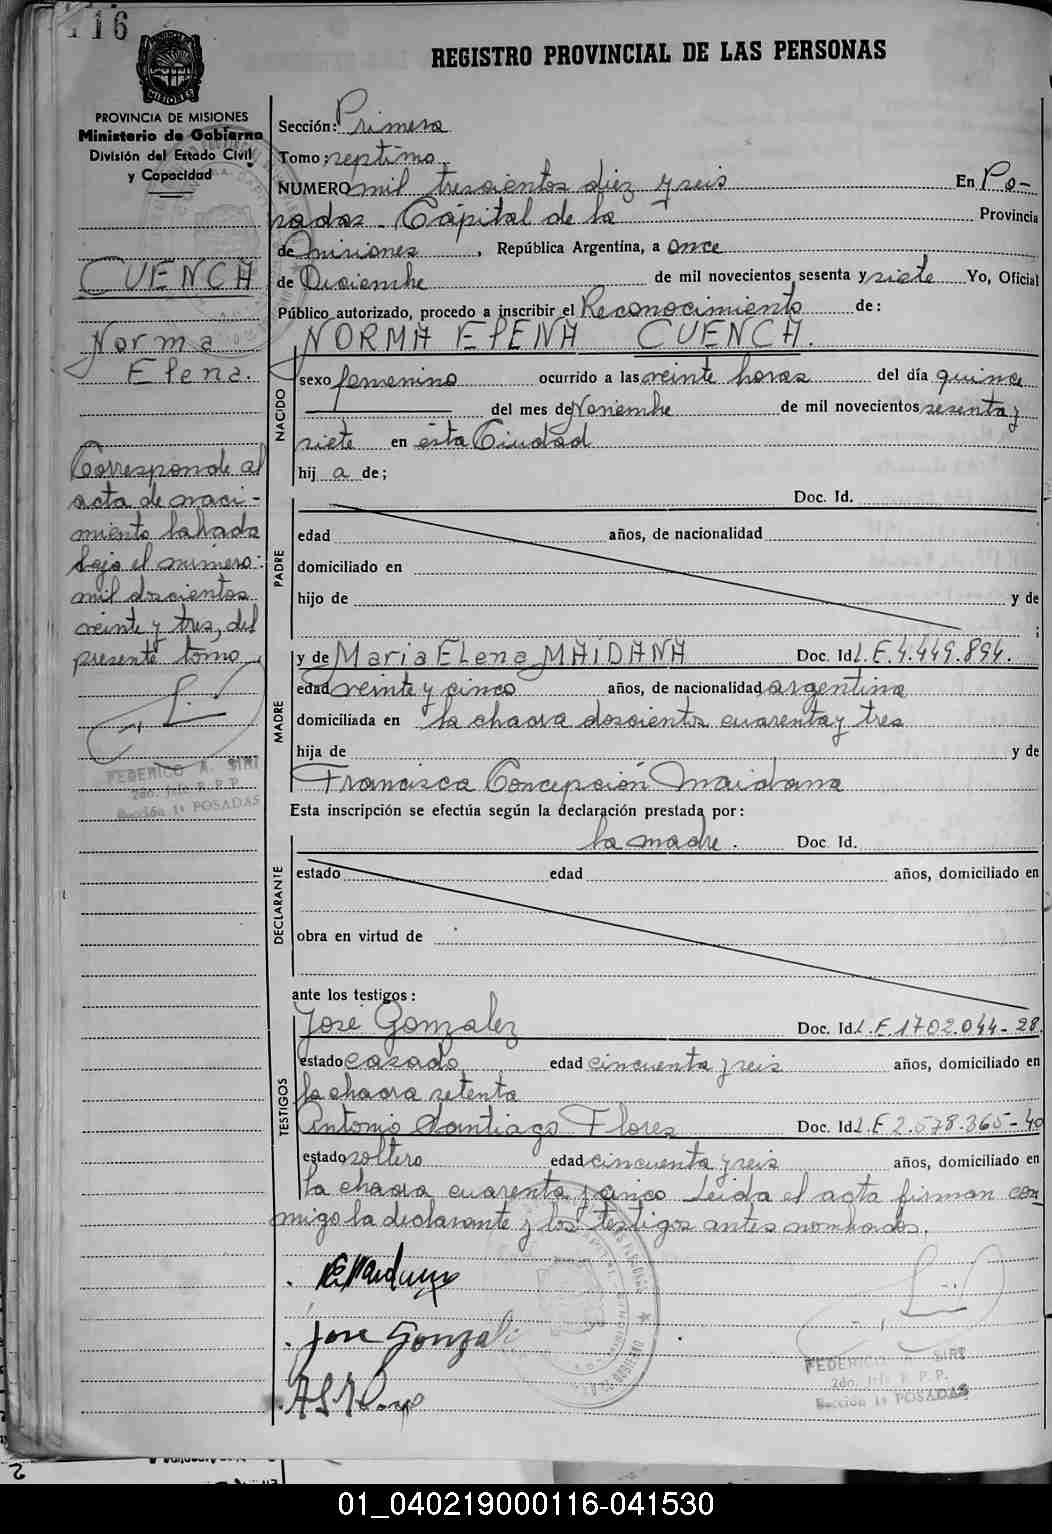 116
REGISTRO PROVINCIAL DE LAS PERSONAS
MISIONES
PROVINCIA DE MISIONES
Ministerio de Gobierno
División del Estado Civil
y Capacidad
CUENCA
Norma
Elena.
Corresponde al
acta de naci-
miento labrada
bajo el número:
mil doscientos
veinte y tres, del
presente tomo
FEDERICO A. SIRI
2do. Jefe R. P. P.
Sección 1ª POSADAS
Sección: Primera
Tomo: septimo.
NUMERO mil trescientos diez y seis En Po-
sadas. Capital de la Provincia
de Misiones, República Argentina, a once
de Diciembre de mil novecientos sesenta y siete Yo, Oficial
Público autorizado, procedo a inscribir el Reconocimiento de:
NORMA ELENA CUENCA.
NACIDO
sexo femenino ocurrido a las veinte horas del día quince
del mes de Noviembre de mil novecientos sesenta y
siete en esta Ciudad
hij a de;
PADRE
Doc. Id.
edad años, de nacionalidad
domiciliado en
hijo de y de
;
MADRE
y de Maria Elena MAIDANA Doc. Id L.E. 4.449.894.
edad veinte y cinco años, de nacionalidad argentina
domiciliada en la chacra doscientos cuarenta y tres
hija de y de
Francisca Concepción Maidana
Esta inscripción se efectúa según la declaración prestada por:
la madre. Doc. Id.
DECLARANTE
estado edad años, domiciliado en
obra en virtud de
ante los testigos:
TESTIGOS
José Gonzalez Doc. Id L.E. 1702.044-28.
estado casado edad cincuenta y seis años, domiciliado en
la chacra setenta
Antonio Santiago Flores Doc. Id L.E 2.578.365-40
estado soltero edad cincuenta y seis años, domiciliado en
la chacra cuarenta y cinco Leida el acta firman con
migo la declarante y los testigos antes nombrados.
Jose Gonzalez
FEDERICO A. SIRI
2do. Jefe R. P. P.
Sección 1ª POSADAS
01_040219000116-041530